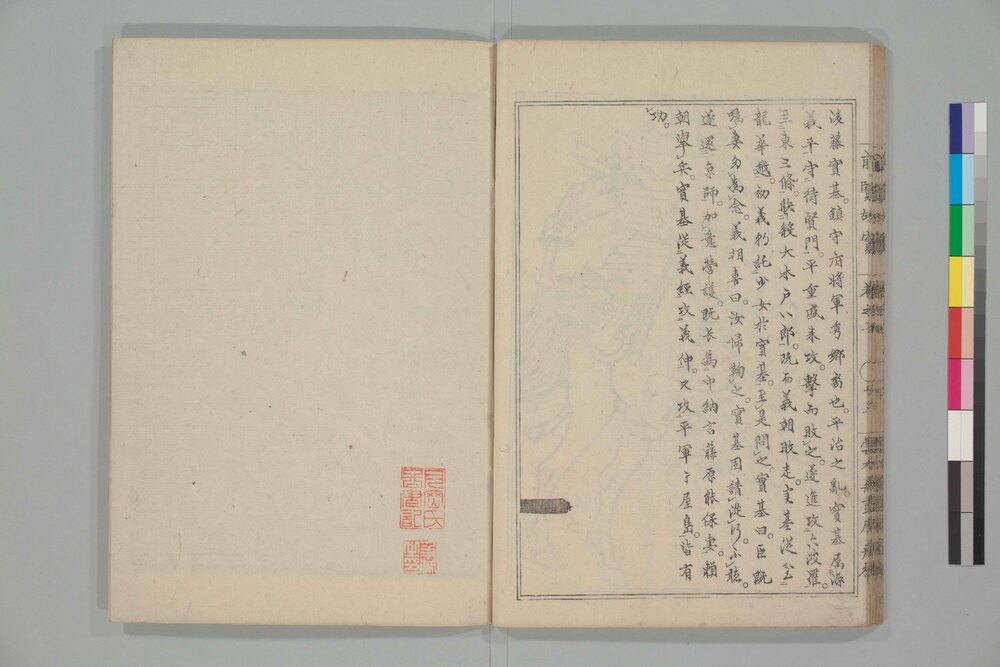 後藤實基。鎮守府將軍秀鄉裔也。平治之亂。實基屬源
義平守待賢門。平重盛来攻。擊而敗之。遂進攻六波羅。
至東三條。殺大木戸八郎。既而義朝敗走。実基従至
龍華越。初義朝託少女於實基。至是問之。實基曰。臣既
嘱妻勿爲念。義朝喜曰。汝帰鞠之。實基固請従行。不聴。
遂還京師。加意營護。既長爲中納言藤原能保妻。賴
朝擧兵。實基従義経攻義仲。又攻平軍于屋島。皆有
功。
前賢故實